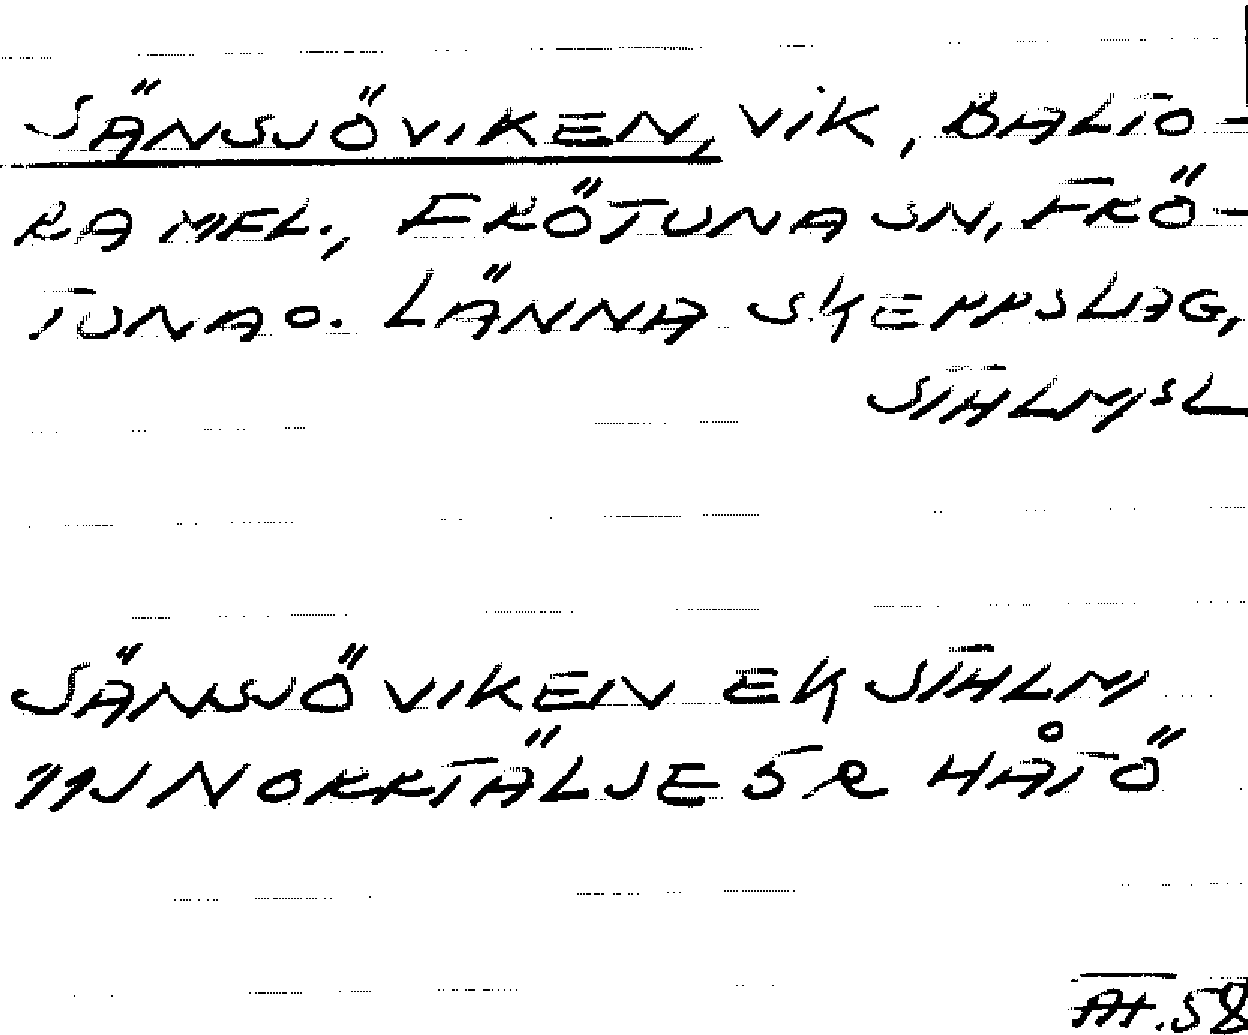 SÄNSJÖVIKEN, VIK, BALTO-
RA MFL., FRÖTUNA SN, FRÖ-
TUNA O. LÄNNA SKEPPSLAG,
STHLMSL
SÄNSJÖVIKEN EK STHLM
11J NORRTÄLJE 5R HÅTÖ
AT.58